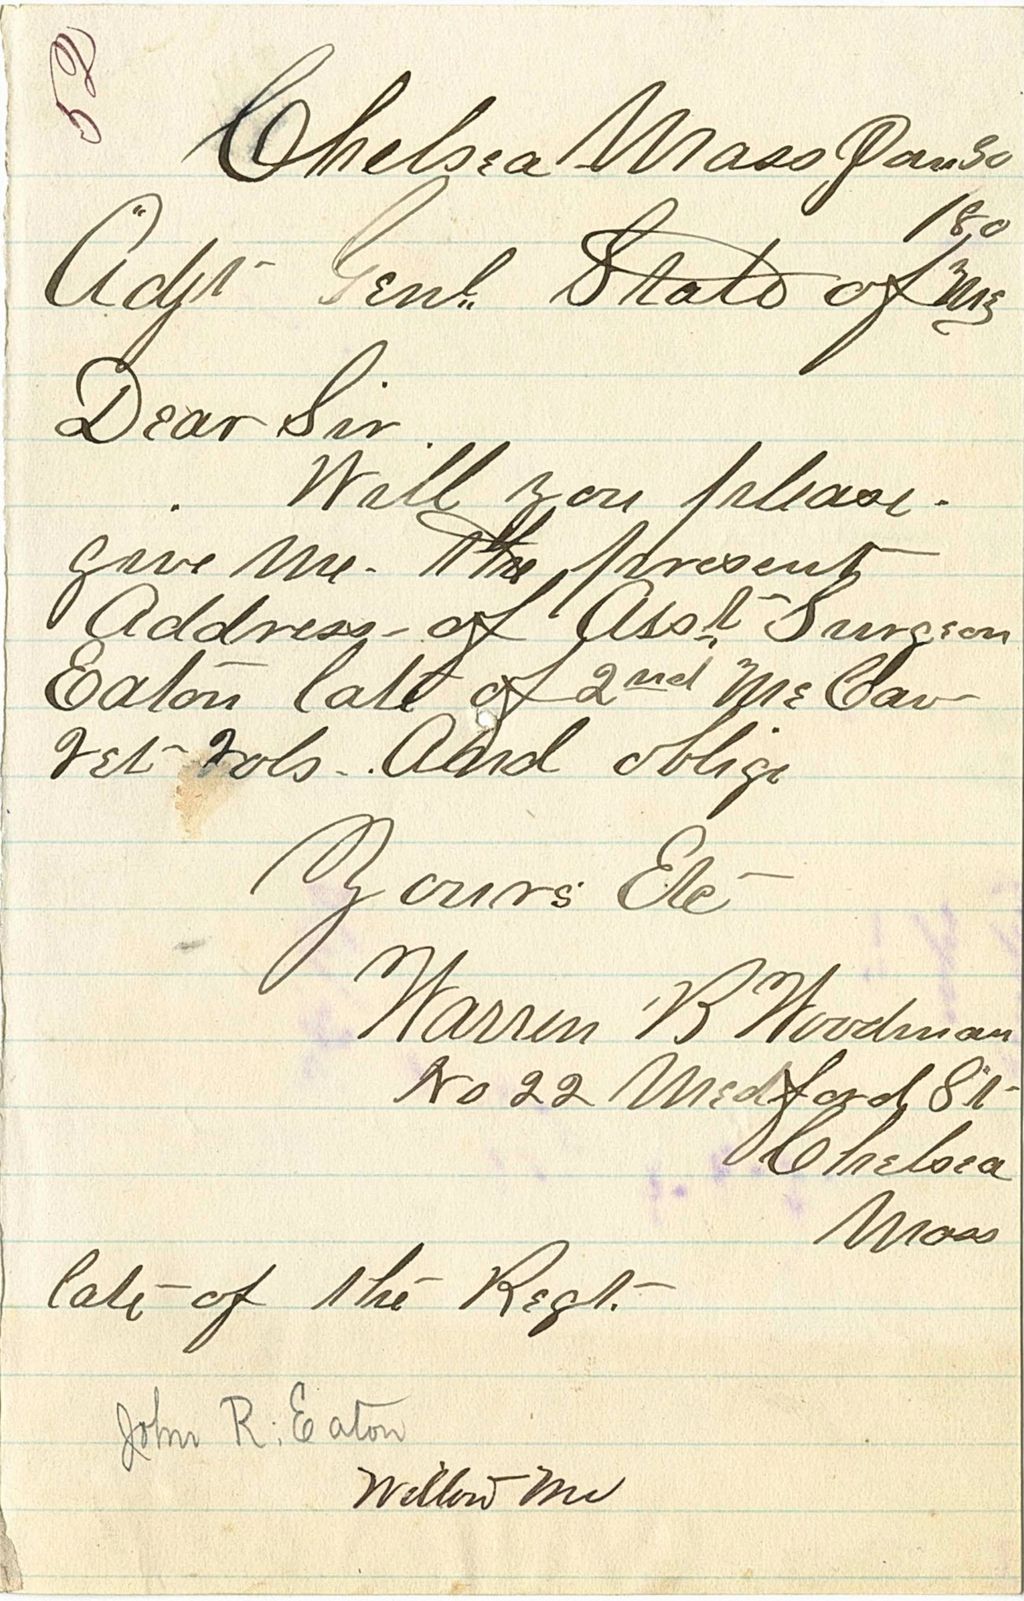 52
Chelsea Mass Jan 30
180
Adjt Genl. State of Me
Dear Sir
Will you please
give me the present
Address of Asst Surgeon
Eaton late of 2nd Me Cav
Vet Vols. And oblige
Yours Etc
Warren B Woodman
No 22 Medford St
Chelsea
Mass
late of the Regt.
John R. Eaton
Me